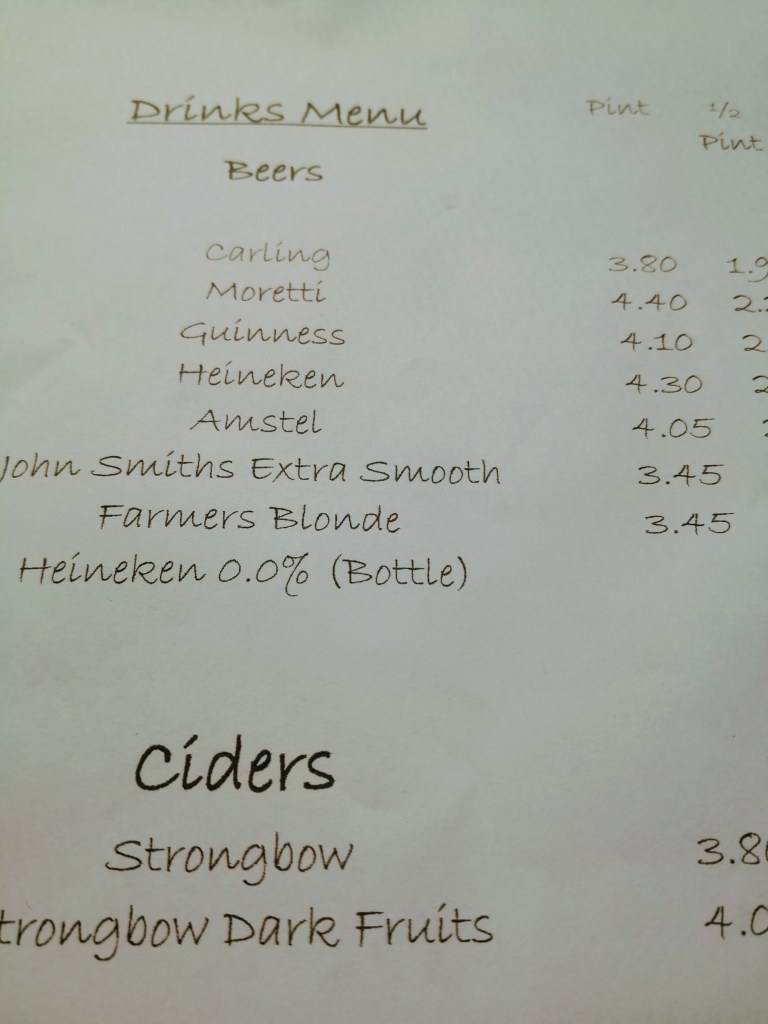 Drinks Menu Pint 1/2
Pint
Beers
Carling 3.80
Moretti 4.40
Guinness 4.10
Heineken 4.30
Amstel 4.05
John Smiths Extra Smooth 3.45
Farmers Blonde 3.45
Heineken 0.0% (Bottle)
Ciders
Strongbow 3.8
trongbow Dark Fruits 4.0